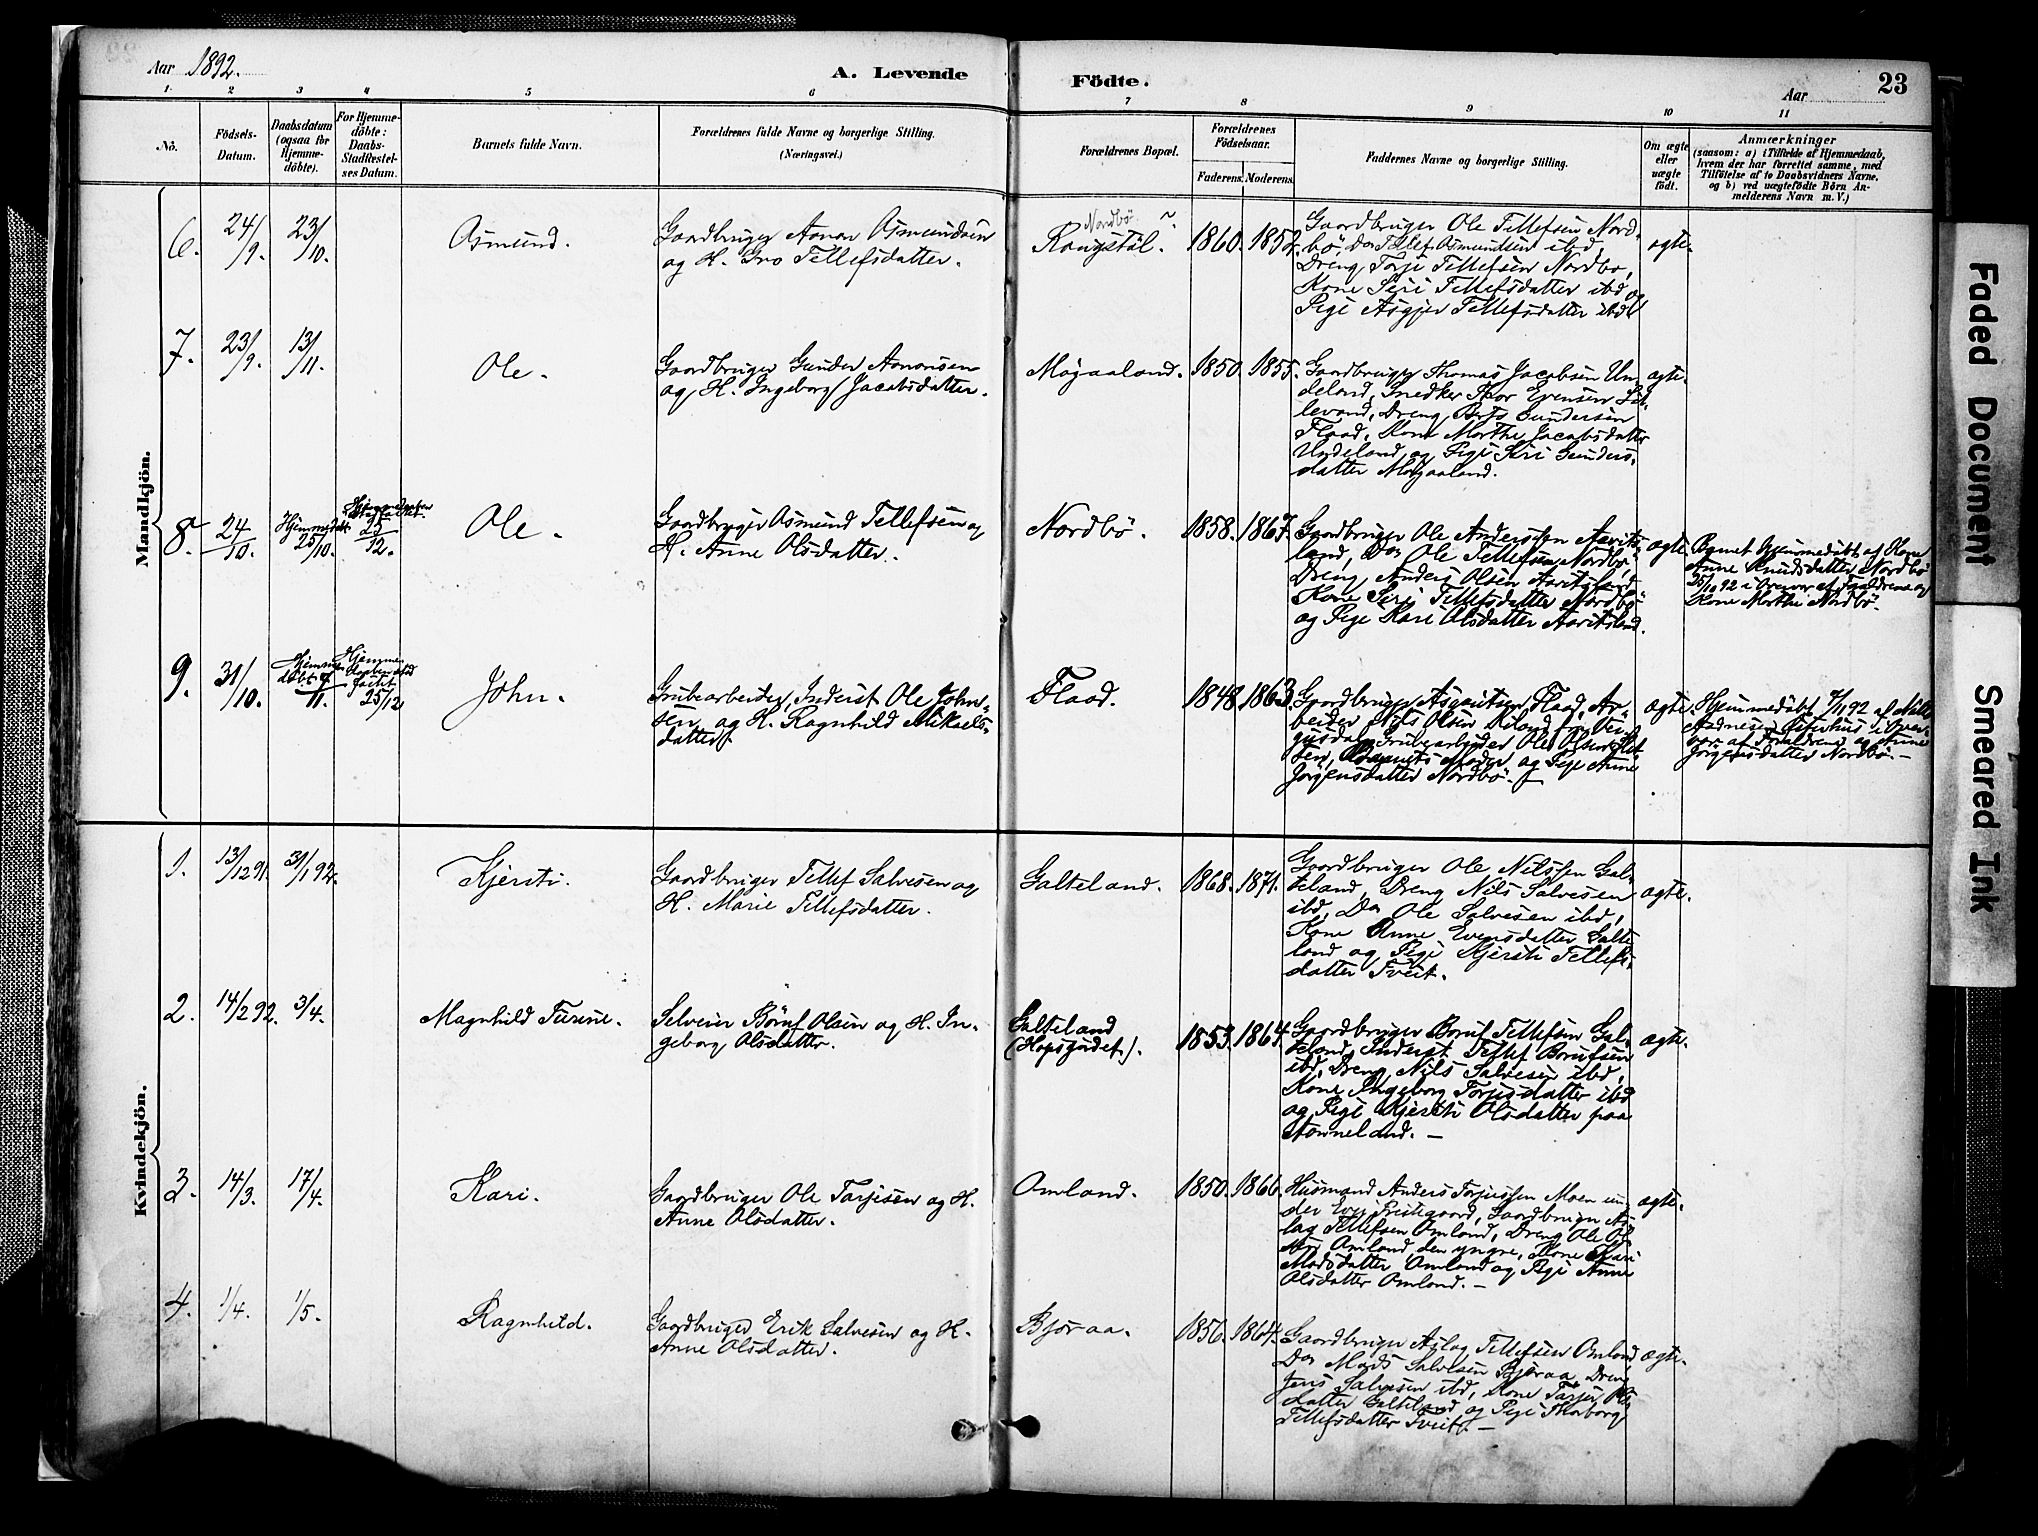 Aar 1892.
A. Levende
Födte.
Aar
23
1 2 3 4 5 6 7 8 9 10 11
No.
Födsels-
Datum.
Daabsdatum
(ogsaa for
Hjemme-
döbte).
For Hjemme-
döbte:
Daabs-
Stadfæstel-
ses Datum.
Barnets fulde Navn.
Forældrenes fulde Navne og borgerlige Stilling.
(Næringsvei.)
Forældrenes Bopæl.
Forældrenes
Födselsaar.
Faderens. Moderens.
Faddernes Navne og borgerlige Stilling.
Om ægte
eller
uægte
födt.
Anmærkninger
(saasom: a) i Tilfælde af Hjemmedaab,
hvem der har forrettet samme, med
Tilföielse af to Daabsvidners Navne,
og b) ved uægtefödte Börn An-
melderens Navn m. V.)
Mandkjön.
6.
24/9.
23/10.
Asmund.
Gaardbruger Aanon Asmundsen
og H. Gro Tellefsdatter.
Nordbö
Rongstöl.
1860. 1852.
Gaardbruger Ole Tellefsen Nord-
bö, Do Tellef Asmundsen ibd,
Dreng Torje Tellefsen Nordbö,
Kone Siri Tellefsdatter ibd og
Pige Asgjer Tellefsdatter ibd
ægte.
7.
23/9.
13/11.
Ole.
Gaardbruger Gunder Aanonsen
og H. Ingeborg Jacobsdatter.
Mögaaland.
1850. 1855.
Gaardbruger Thomas Jacobsen Un-
deland, Snedker Thor Evensen
levand, Dreng Gundersen
Flaad, Kone Marthe Jacobsdatter
Undeland og Pige Siri Gunders-
datter Mögaaland.
ægte.
8.
24/10.
Hjemmedöbt
25/10.
25/12.
Ole.
Gaardbruger Asmund Tellefsen og
H. Anne Olsdatter.
Nordbö.
1858. 1867.
Gaardbruger Ole Andersen Aarits-
land, Do Ole Tellefsen Nordbö,
Dreng Anders Olsen Aaritsland,
Kone Siri Tellefsdatter Nordbö
og Pige Kari Olsdatter Aaritsland.
ægte.
Barnet hjemmedöbt af Kone
Anne Knudsdatter Nordbö
25/10 92 i Overvær af Forældrene og
Kone Marthe Nordbö.
9.
31/10.
Hjemme-
döbt
11.
Hjemme-
daaben stad
fæstet
25/12
John.
Grubearbeider, Inderst Ole John-
sen og H. Ragnhild Mikaels-
datter.
Flaad.
1848. 1863.
Gaardbruger Flaad, Ar-
beider Nils Olsen
Grubearbeider Ole
Barnets Moder og Pige Anne
Jörgensdatter Nordbö.
ægte.
Hjemmedöbt 92 af
i Over-
vær af Forældrene og Anne
Jörgensdatter Nordbö. —
Kvindekjön.
1.
13/12 91.
31/1 92.
Kjersti.
Gaardbruger Tellef Salvesen og
H. Marie Tellefsdatter.
Galteland.
1868. 1871.
Gaardbruger Ole Nilssen Gal-
teland, Dreng Nils Salvesen
ibd, Do Ole Salvesen ibd,
Kone Anne Evensdatter Galte-
land og Pige Kjersti Tellefs-
datter Tveit.
ægte.
2.
14/2 92.
3/4.
Magnhild Turine.
Selveier Börut Olsen og H. In-
geborg Olsdatter.
Galteland
(Hopsgjødet).
1853. 1864.
Gaardbruger Borut Tellefsen Gal-
teland, Inderst Tellef Borufsen
ibd, Dreng Nils Salvesen ibd,
Kone Ingeborg Torjesdatter ibd
og Pige Kjersti Olsdatter paa
ægte.
3.
14/3.
17/4.
Kari.
Gaardbruger Ole Tarjesen og H.
Anne Olsdatter.
Omland.
1850. 1866.
Husmand Anders Torjussen Moen un-
der Evje Prestegaard, Gaardbruger As-
lag Tellefsen Omland, Dreng Ole Ol-
sen Omland, den yngre, Kone Kari
Madsdatter Omland og Pige Anne
Olsdatter Omland. —
ægte.
4.
1/4.
1/5.
Ragnhild.
Gaardbruger Erik Salvesen og H.
Anne Olsdatter.
Bjoraa.
1856. 1864.
Gaardbruger Aslag Tellefsen Omland,
Do Mads Salvesen Bjoraa, Dreng
Jens Salvesen ibd, Kone Torjer Ols-
datter Galteland og Pige Thorborg
Tellefsdatter Tveit. —
ægte.
Faded Document
Smeared Ink